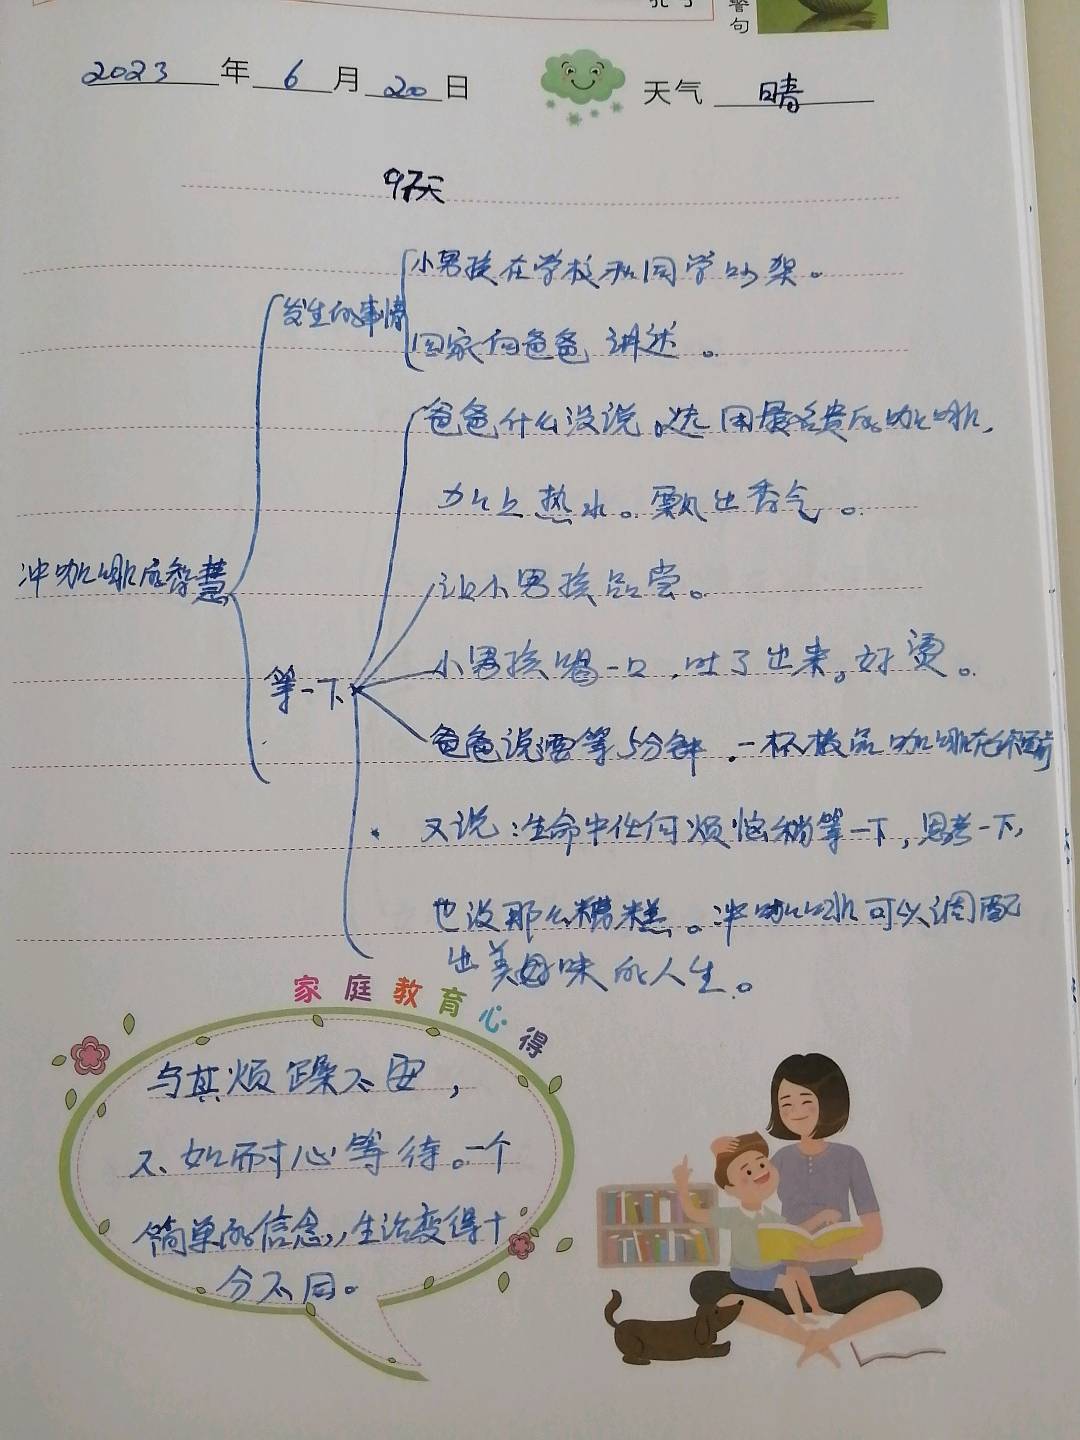 警句
2023年6月20日 天气 晴
97天
小男孩在学校和同学吵架。
发生的事情
回家向爸爸讲述。
爸爸什么没说。选用最名贵的咖啡,
加上热水。飘出香气。
冲咖啡的智慧
让小男孩品尝。
小男孩喝一口,吐了出来。好烫。
等一下
爸爸说要等5分钟.一杯极品咖啡
又说:生命中任何烦恼稍等一下,思考一下,
也没那么糟糕。冲咖啡可以调配
出美好味的人生。
家庭教育心得
与其烦躁不安,
不如耐心等待。一个
简单的信念,,生活变得十
分不同。